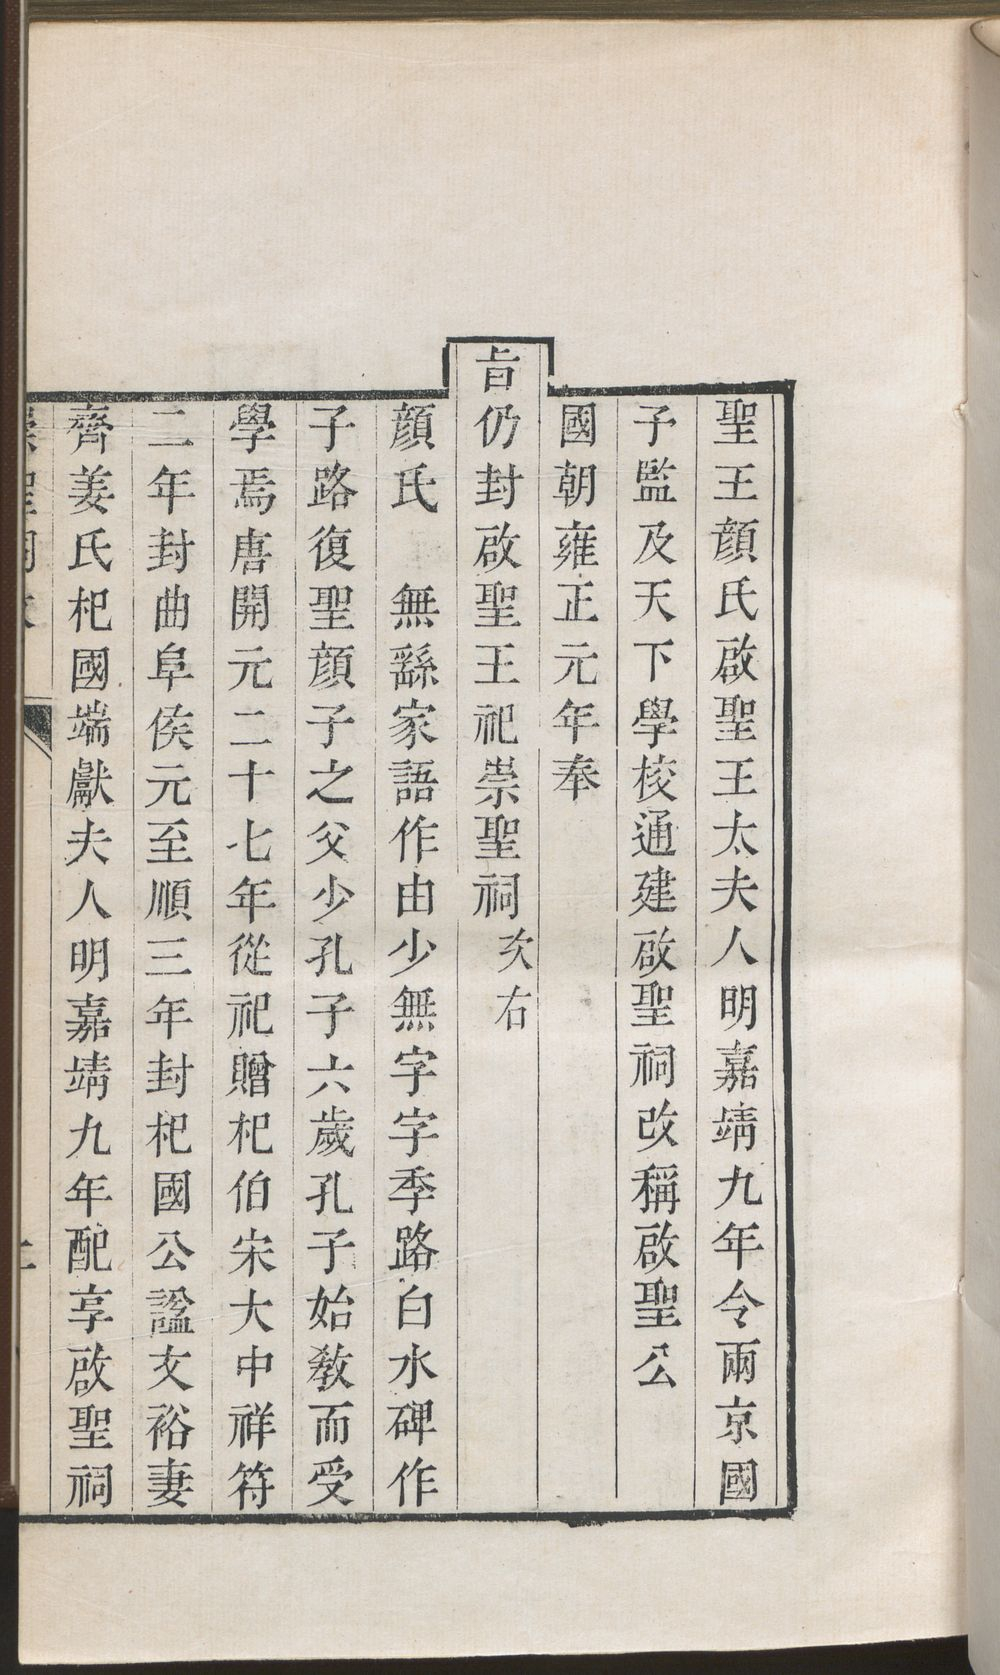 聖王顔氏啟聖王太夫人明嘉靖九年令兩京國
子監及天下學校通建啟聖祠改稱啟聖公
國朝雍正元年奉
旨仍封啟聖王祀崇聖祠次右
顔氏　無繇家語作由少無字字季路白水碑作
子路復聖顔子之父少孔子六歲孔子始敎而受
學焉唐開元二十七年從祀贈杞伯宋大中祥符
二年封曲阜侯元至順三年封杞國公諡文裕妻
齊姜氏杞國端獻夫人明嘉靖九年配享啟聖祠